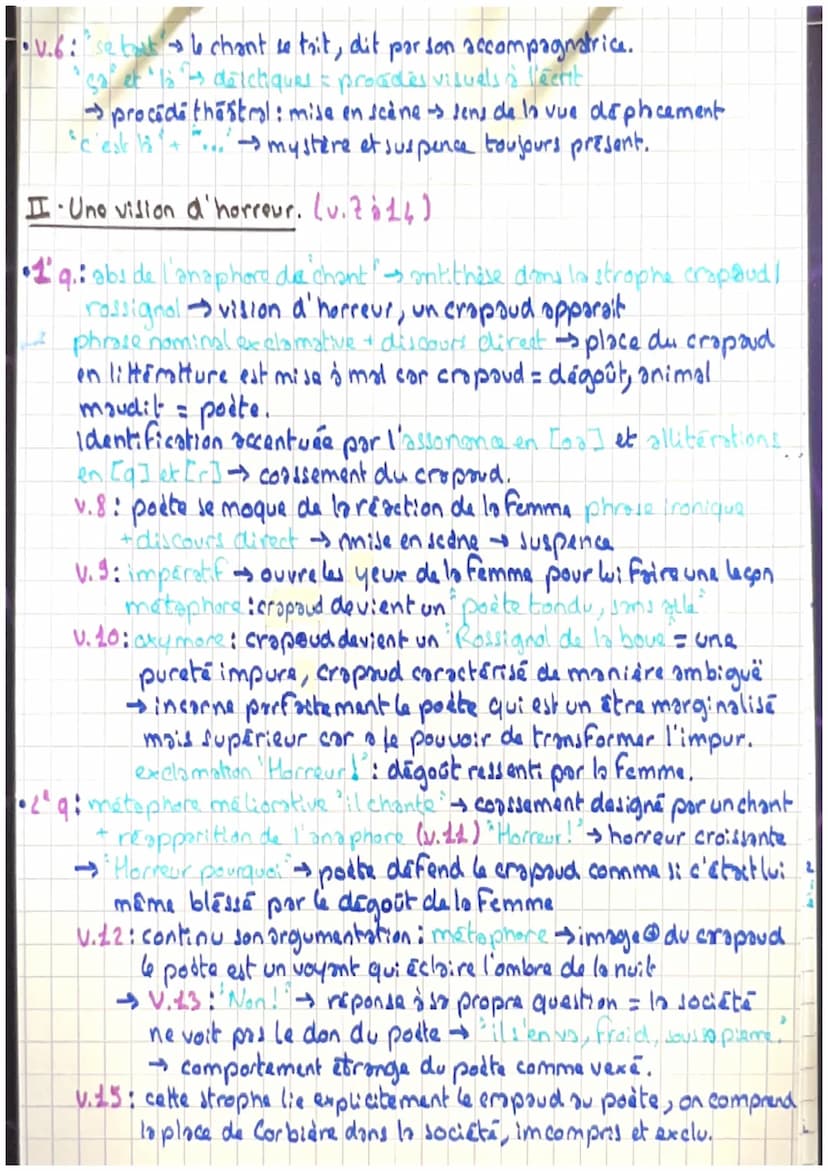 • v.6: "se tait" → le chant se tait, dit par son accompagnatrice.
"ça" et "là" → déictiques = procédés visuels à l'écrit
→ procédé théâtral : mise en scène → sens de la vue déplacement
"c'est là" + "..." → mystère et suspence toujours présent.
II - Une vision d'horreur. (v.7 à 14)
• 1° q.: abs de l'anaphore de "chant" → antithèse dans la strophe crapaud/
rossignol → vision d'horreur, un crapaud apparait
phrase nominal exclamative + discours direct → place du crapaud
en littérature est mise à mal car crapaud = dégoût, animal
maudit = poète.
Identification accentuée par l'assonance en [oa] et allitérations
en [q] et [r] → coassement du crapaud.
v.8: poète se moque de la réaction de la femme phrase ironique
+ discours direct → mise en scène → suspence
v.9: impératif → ouvre les yeux de la femme pour lui faire une leçon
métaphore : crapaud devient un "poète tondu, sans aile"
v.10: oxymore : crapaud devient un "Rossignol de la boue" = une
pureté impure, crapaud caractérisé de manière ambiguë
→ incarne parfaitement le poète qui est un être marginalisé
mais supérieur car a le pouvoir de transformer l'impur.
exclamation "Horreur!": dégoût ressenti par la femme.
• 2° q: métaphore méliorative "il chante" → coassement designé par un chant
+ réapparition de l'anaphore (v.11) "Horreur!" → horreur croissante
→ "Horreur pourquoi" → poète défend le crapaud comme si c'était lui
même bléssé par le dégoût de la femme
v.12: continu son argumentation : métaphore → image ⊕ du crapaud
le poète est un voyant qui éclaire l'ombre de la nuit
→ v.13: "Non!" → réponse à sa propre question = la société
ne voit pas le don du poète → "il s'en va, froid, sous sa pierre."
→ comportement étrange du poète comme vexé.
v.15: cette strophe lie explicitement le crapaud au poète, on comprend
la place de Corbière dans la société, imcompris et exclu.